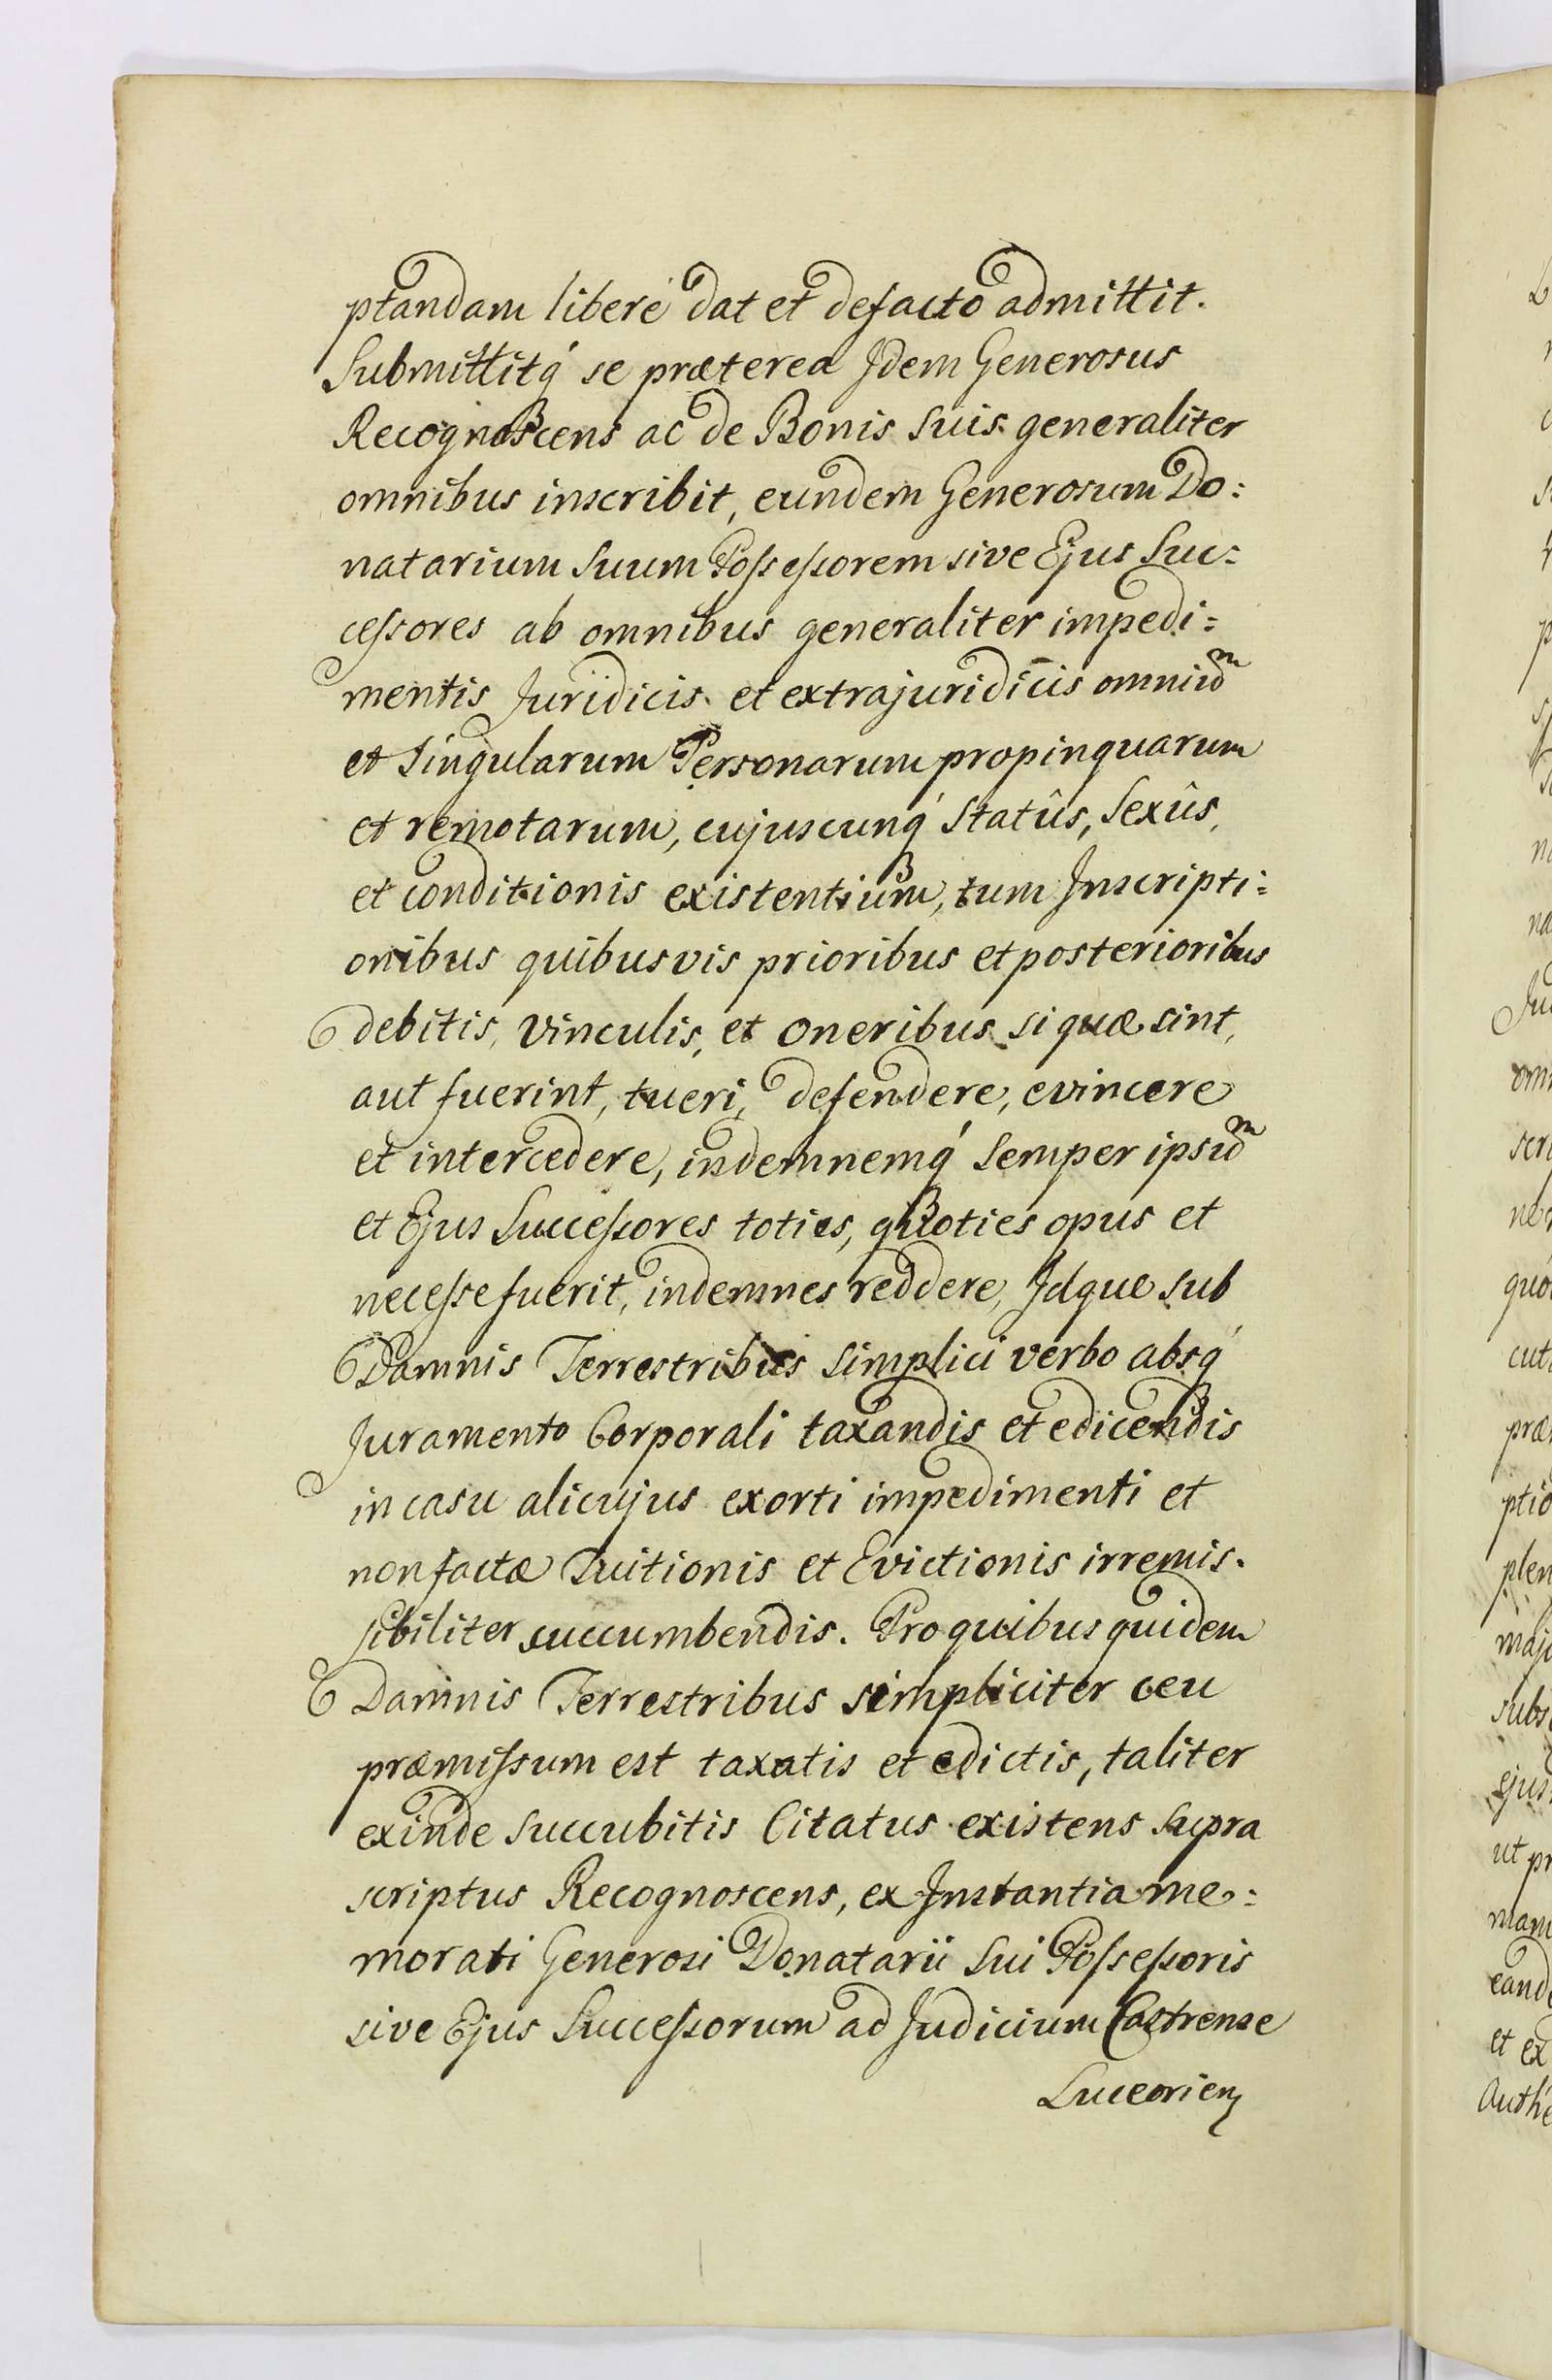 ptandam liberé dat et defacto admittit.
Submittitq́ se præterea Jdem Generosus
Recognoscens ac de Bonis suis generaliter
omnibus inscribit, eundem Generosum Do:
natarium suum Poſseſsorem sive Ejus Suc:
ceſsores ab omnibus generaliter impedi:
mentis Juridicis et extrajuridicis omniuᵐ
et singularum Personarum propinquarum
et remotarum, cujuscunq́ Statûs, Sexûs,
et conditionis existentium, tum Jnscripti:
onibus quibusvis prioribus et posterioribus
debitis, vinculis, et oneribus si quæ sint,
aut fuerint, tueri, defendere, evincere
et intercedere, indemnemq́ semper ipsuᵐ
et Ejus Succeſsores toties, quoties opus et
neceſse fuerit, indemnes reddere, Jdque sub
Damnis Terrestribus simplici verbo absq́
Juramento Corporali taxandis et edicendis
in casu alicujus exorti impedimenti et
non factæ Tuitionis et Evictionis irremis-
sibiliter succumbendis. Pro quibus quidem
Damnis Terrestribus simpliciter ceu
præmiſsum est taxatis et edictis, taliter
exinde succubitis Citatus existens supra
scriptus Recognoscens, ex Jnstantia me:
morati Generosi Donatarii sui Poſseſsoris
sive Ejus Succeſsorum ad Judicium Castrense
Luceorien